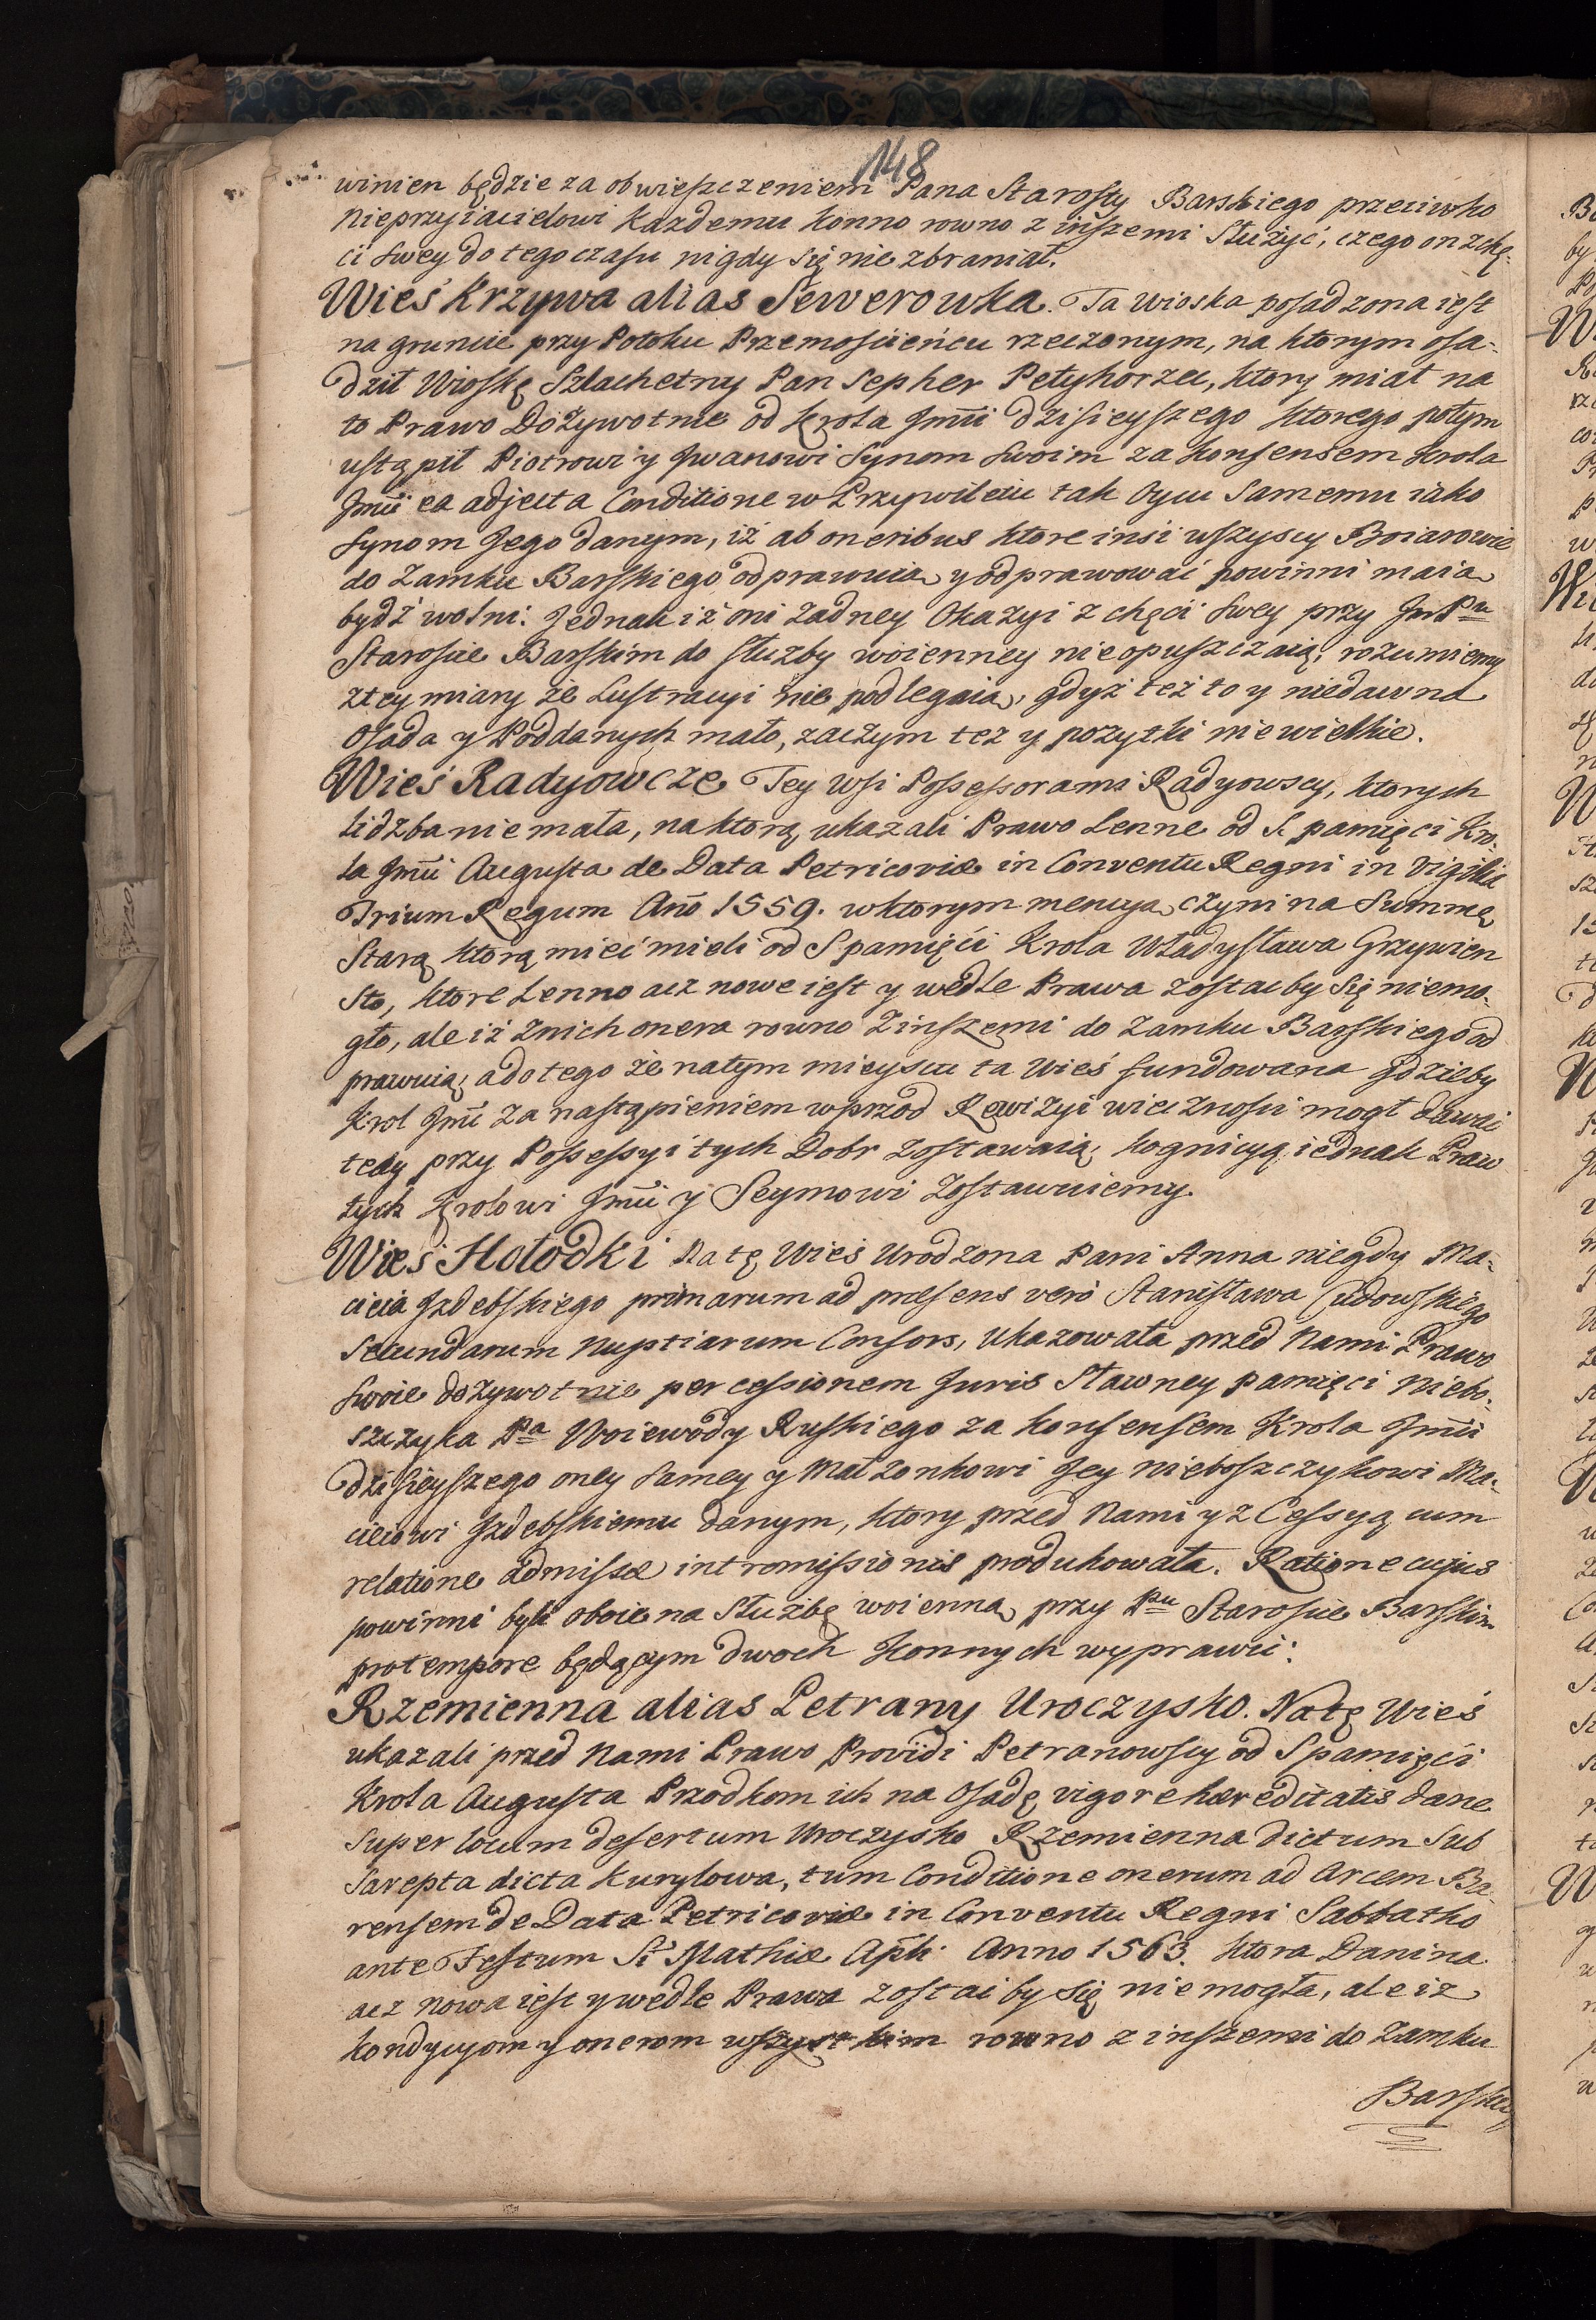 148
winien będzie za obwieszczeniem Pana Starosty Barskiego przeciwko
Nieprzyiacielowi każdemu konno rowno z inszemi Służyć, czego on z chę-
ci swey do tego czasu nigdy się nie zbraniał.
Wieś Krzywa alias Sewerowka. Ta wioska posadzona iest
na gruncie przy Potoku Przemościeńcu rzeczonym, na ktorym osa-
dził Wioskę Szlachetny Pan Sepher Petyhorzec, ktory miał na
to Prawo Dożywotnie od Krola Jmći dzisieyszego ktorego potym
ustąpił Piotrowi y Jwanowi Synom swoim za konsensem Krola
Jmći ea adjecta Conditione w Przywileiu tak Oycu Samemu iako
Synom Jego danym, iż ab oneribus ktore insi wszyscy Boiarowie
do Zamku Barskiego odprawuią y odprawować powinni maią
bydź wolni: Jednak iż oni żadney Okazyi z chęci swey przy Jm Pu
Staroście Barskim do służby woienney nie opuszczaią, rozumiemy
z tey miary że Lustracyi nie podlegaią, gdyż też to y niedawna
Osada y Poddanych mało, zaczym tez y pozytki niewielkie.
Wieś Radyowcze Tey Wsi Possessorami Radyowscy, ktorych
lidzba nie mała, na ktorą ukazali Prawo Lenne od S. pamięci Kro-
la Jmći Augusta de Data Petricoviæ in Conventu Regni in Vigilia
Trium Regum Anō 1559. w ktorym mencyą czyni na Summę
Starą ktorą mieć mieli od S pamięći Krola Władysława Grzywien
Sto, ktore Lenno acz nowe iest y wedle Prawa zostać by się nie mo-
gło, ale iż z nich onera rowno z inszemi do Zamku Barskiego od
prawuią, a do tego że na tym mieyscu ta Wieś fundowana gdzieby
Krol Jmć za nastąpieniem wprzod Rewizyi wiecznośći mogł dawać
tedy przy Possessyi tych Dobr zostawaią, kognicyą iednak Praw
tych Krolowi Jmći y Seymowi zostawuiemy.
Wieś Hołodki Na tę Wieś Urodzona Pani Anna niegdy Ma-
cieia Jzdebskiego primarum ad præsens vero Stanisława Cudowskiego
Secundarum Nuptiarum Consors, Ukazowała przed Nami Prawo
swoie dożywotnie per cessionem Juris sławney pamięci Niebo-
szczyka Pa Woiewody Ruskiego za konsensem Krola Jmći
dzisieyszego oney samey y Małżonkowi Jey Nieboszczykowi Ma-
cieiowi Jzdebskiemu danym, ktory przed Nami y z Cessyą cum
relatione admissæ intromissionis produkowała. Ratione cujus
powinni byli oboie na Służbę woienną przy Pu Staroście Barskim
pro tempore będącym dwoch Konnych wyprawić:
Rzemienna alias Petrany Uroczysko. Na tę Wieś
ukazali przed Nami Prawo Providi Petranowscy od S pamięći
Krola Augusta Przodkom ich na Osadę vigore hæreditatis dane
Super locum desertum Uroczysko Rzemienna dictum Sub
Sarepta dicta Kurylowa, tum Conditione onerum ad Arcem Ba-
rensem de Data Petricoviæ in Conventu Regni Sabbatho
ante Festum St Mathiæ Apli Anno 1563. ktora Danina
acz nowa iest y wedle Prawa zostać by się nie mogła, ale iż
kondycyom y onerom wszystkim rowno z inszemi do Zamku
Barskie